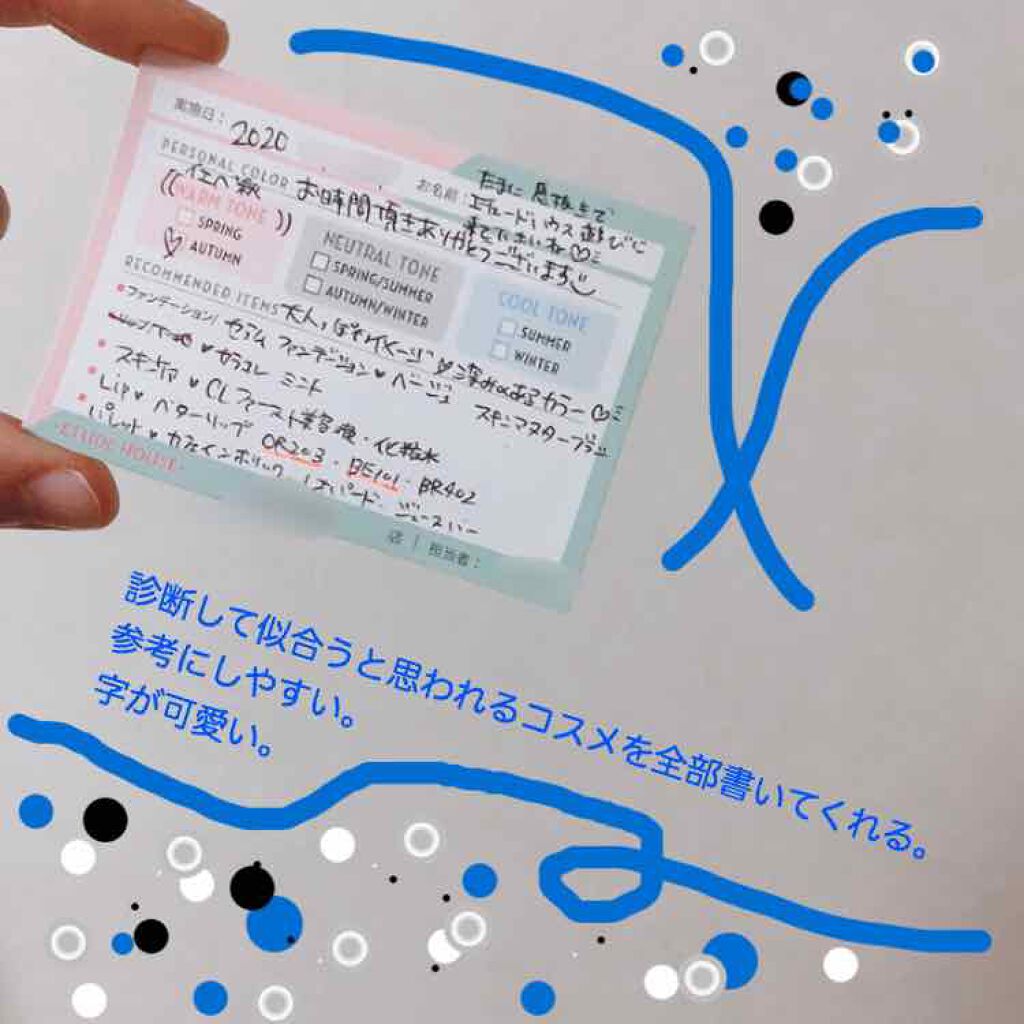 実施日： 2020
PERSONAL COLOR
お名前：
たまに 息抜きで
エチュードハウス 遊びに
来て下さいね♡ミ
お時間頂きありがとうございます
WARM TONE
SPRING
AUTUMN
NEUTRAL TONE
SPRING/SUMMER
AUTUMN/WINTER
COOL TONE
SUMMER
WINTER
RECOMMENDED ITEMS 大人っぽ イメージ 深みのあるカラー♡ミ
・ファンデーション/ セラム ファンデーション♥ ベージュ
♥ カラコレ ミント
・スキンケア ♥ CLファースト美容液・化粧水
・Lip♥ ベターリップ OR203・BE101・BR402
・パレット♥ カフェインホリック・レオパード・ジュースバー
ETUDE HOUSE
店 | 担当者：
診断して似合うと思われるコスメを全部書いてくれる。
参考にしやすい。
字が可愛い。